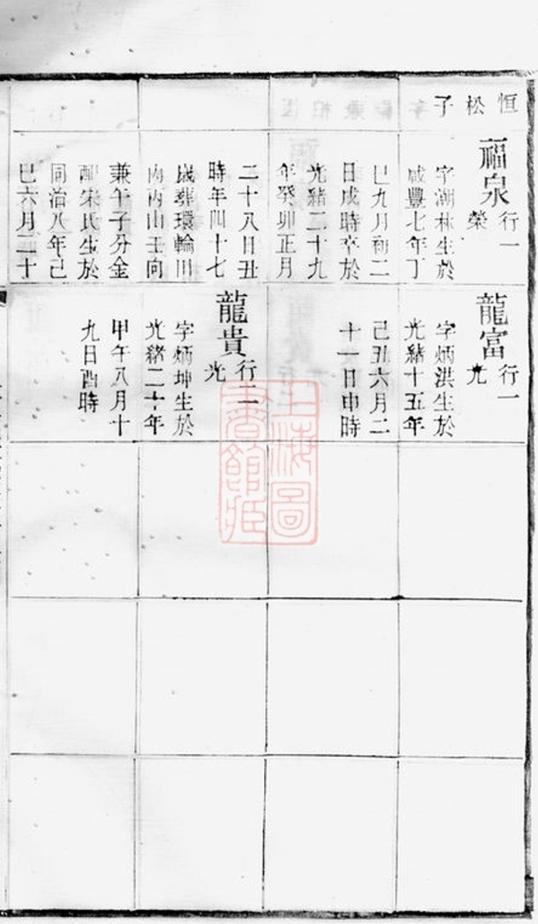 恒松子
福泉
行一
榮
字潮林生於
咸豐七年丁
巳九月初二
日戌時卒於
光緒二十九
年癸卯正月
二十八日丑
時年四十七
歲葬環輪川
內丙山壬向
兼午子分金
配宋氏生於
同治八年己
巳六月二十
龍富
行一
光
字炳洪生於
光緒十五年
己丑六月二
十一日申時
龍貴
行二
光
字炳坤生於
光緒二十年
甲午八月十
九日酉時
上海圖
書館藏